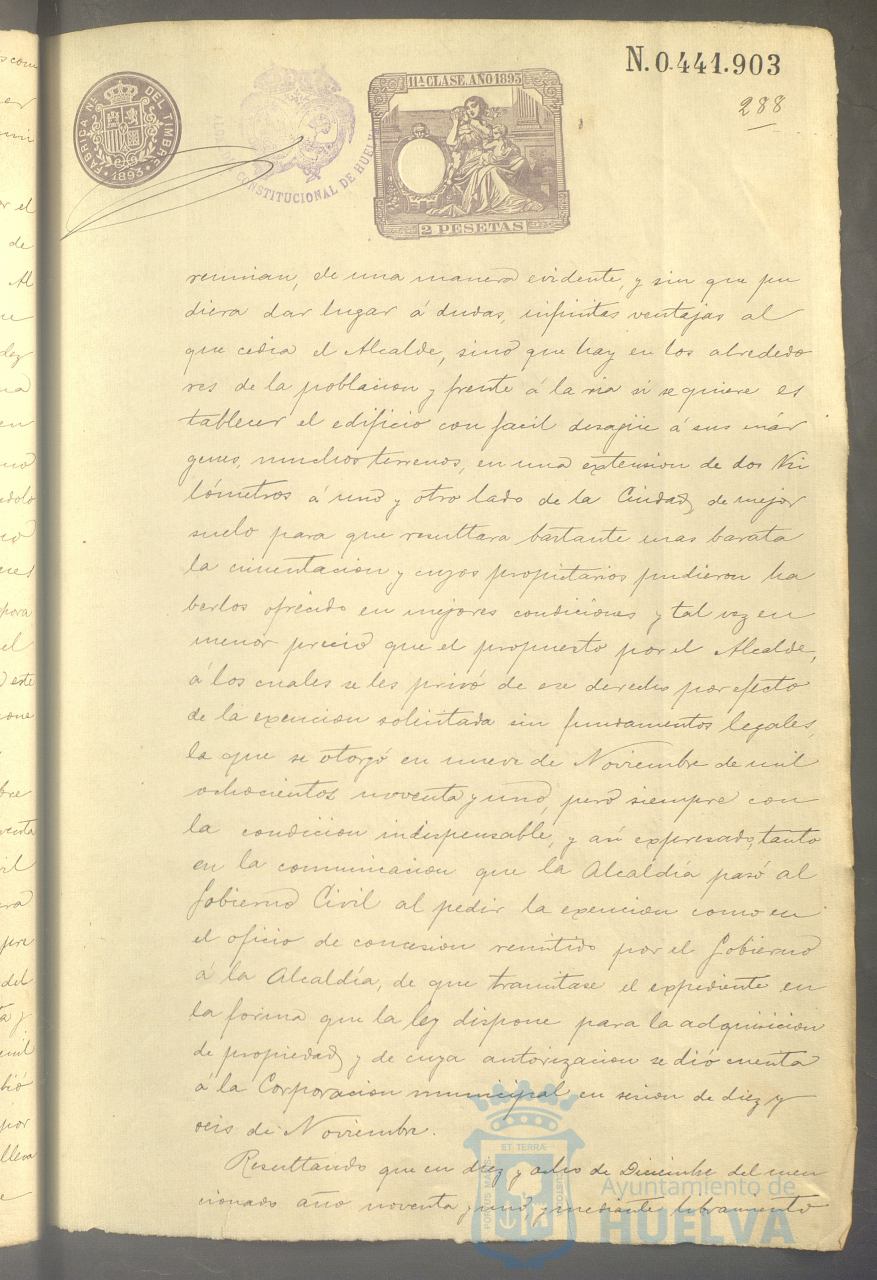 N.0.441.903
288
FÁBRICA Nal DEL TIMBRE
1893
CONSTITUCIONAL DE HUELVA
11ª CLASE. AÑO 1893
2 PESETAS
reunian, de una manera evidente, y sin que pu
diera dar lugar á dudas, infinitas ventajas al
que cedia el Alcalde, sinó que hay en los alrededo
res de la poblacion y frente á la ria si se quiere es
tablecer el edificio con facil desagüe á sus már
genes, muchos terrenos, en una extension de dos Ki
lómetros á uno y otro lado de la Ciudad, de mejor
suelo para que resultara bastante mas barata
la cimentacion y cuyos propietarios pudieron ha
berlos ofrecido en mejores condiciones y tal vez en
menor precio que el propuesto por el Alcalde,
á los cuales se les privó de ese derecho por efecto
de la exencion solicitada sin fundamentos legales,
la que se otorgó en nueve de Noviembre de mil
ochocientos noventa y uno, pero siempre con
la condicion indispensable, y asi expresado, tanto
en la comunicacion que la Alcaldía pasó al
Gobierno Civil al pedir la exencion como en
el oficio de concesion remitido por el Gobierno
á la Alcaldía, de que tramitase el expediente en
la forma que la ley dispone para la adquisicion
de propiedad, y de cuya autorizacion se dió cuenta
á la Corporacion municipal en sesion de diez y
seis de Noviembre.
Resultando que en diez y ocho de Diciembre del men
cionado año noventa y uno, y mediante libramiento
PORTUS MARIS ET TERRÆ CUSTODIA
Ayuntamiento de
HUELVA